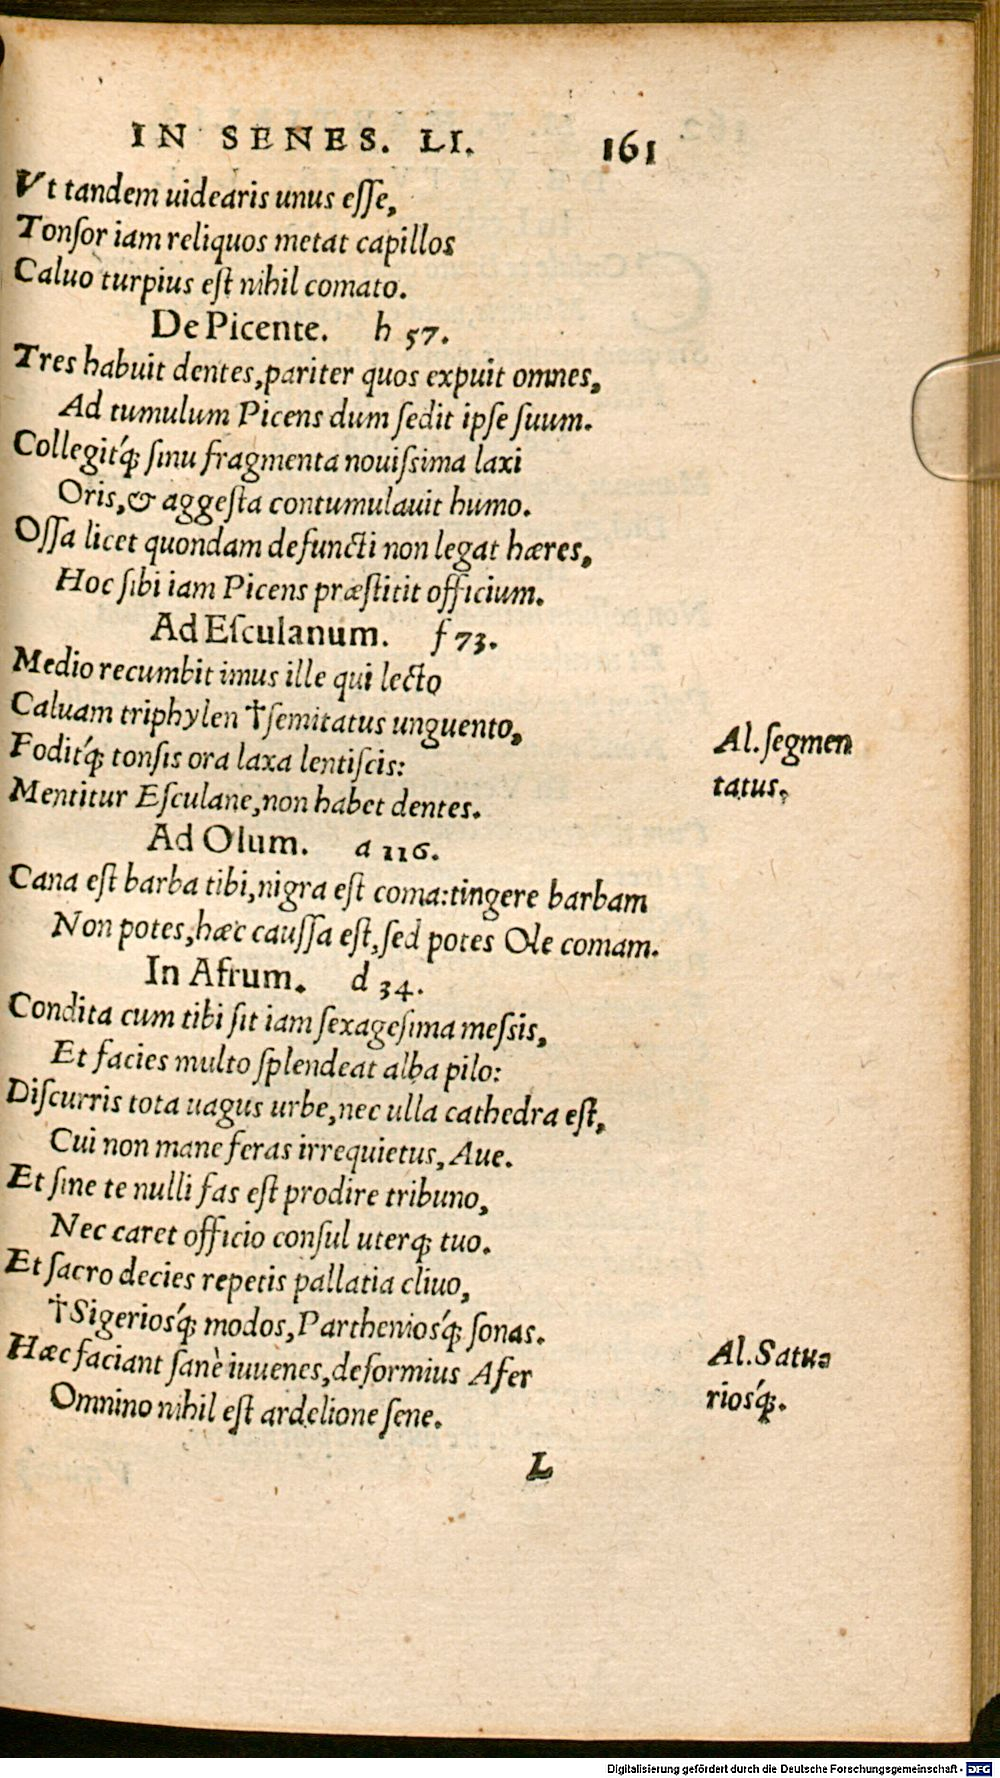 IN SENES. LI. 161
Vt tandem uidearis unus eſſe,
Tonſor iam reliquos metat capillos
Caluo turpius eſt nihil comato.
De Picente. h 57.
Tres habuit dentes, pariter quos expuit omnes,
Ad tumulum Picens dum ſedit ipſe ſuum.
Collegitq́; ſinu fragmenta nouiſsima laxi
Oris, & aggeſta contumulauit humo.
Oſſa licet quondam defuncti non legat hæres,
Hoc ſibi iam Picens præſtitit officium.
Ad Eſculanum. f 73.
Medio recumbit imus ille qui lecto
Caluam triphylen †ſemitatus unguento,
Foditq́; tonſis ora laxa lentiſcis:
Mentitur Eſculane, non habet dentes.
Al. ſegmen
tatus.
Ad Olum. a 116.
Cana eſt barba tibi, nigra eſt coma: tingere barbam
Non potes, hæc cauſſa eſt, ſed potes Ole comam.
In Afrum. d 34.
Condita cum tibi ſit iam ſexageſima meſsis,
Et facies multo ſplendeat alba pilo:
Diſcurris tota uagus urbe, nec ulla cathedra eſt,
Cui non mane feras irrequietus, Aue.
Et ſine te nulli fas eſt prodire tribuno,
Nec caret officio conſul uterq; tuo.
Et ſacro decies repetis pallatia cliuo,
†Sigerioſq́; modos, Parthenioſq́; ſonas.
Hæc faciant ſanè iuuenes, deformius Afer
Omnino nihil eſt ardelione ſene.
Al. Satu-
rioſq́;.
L
Digitalisierung gefördert durch die Deutsche Forschungsgemeinschaft - DFG